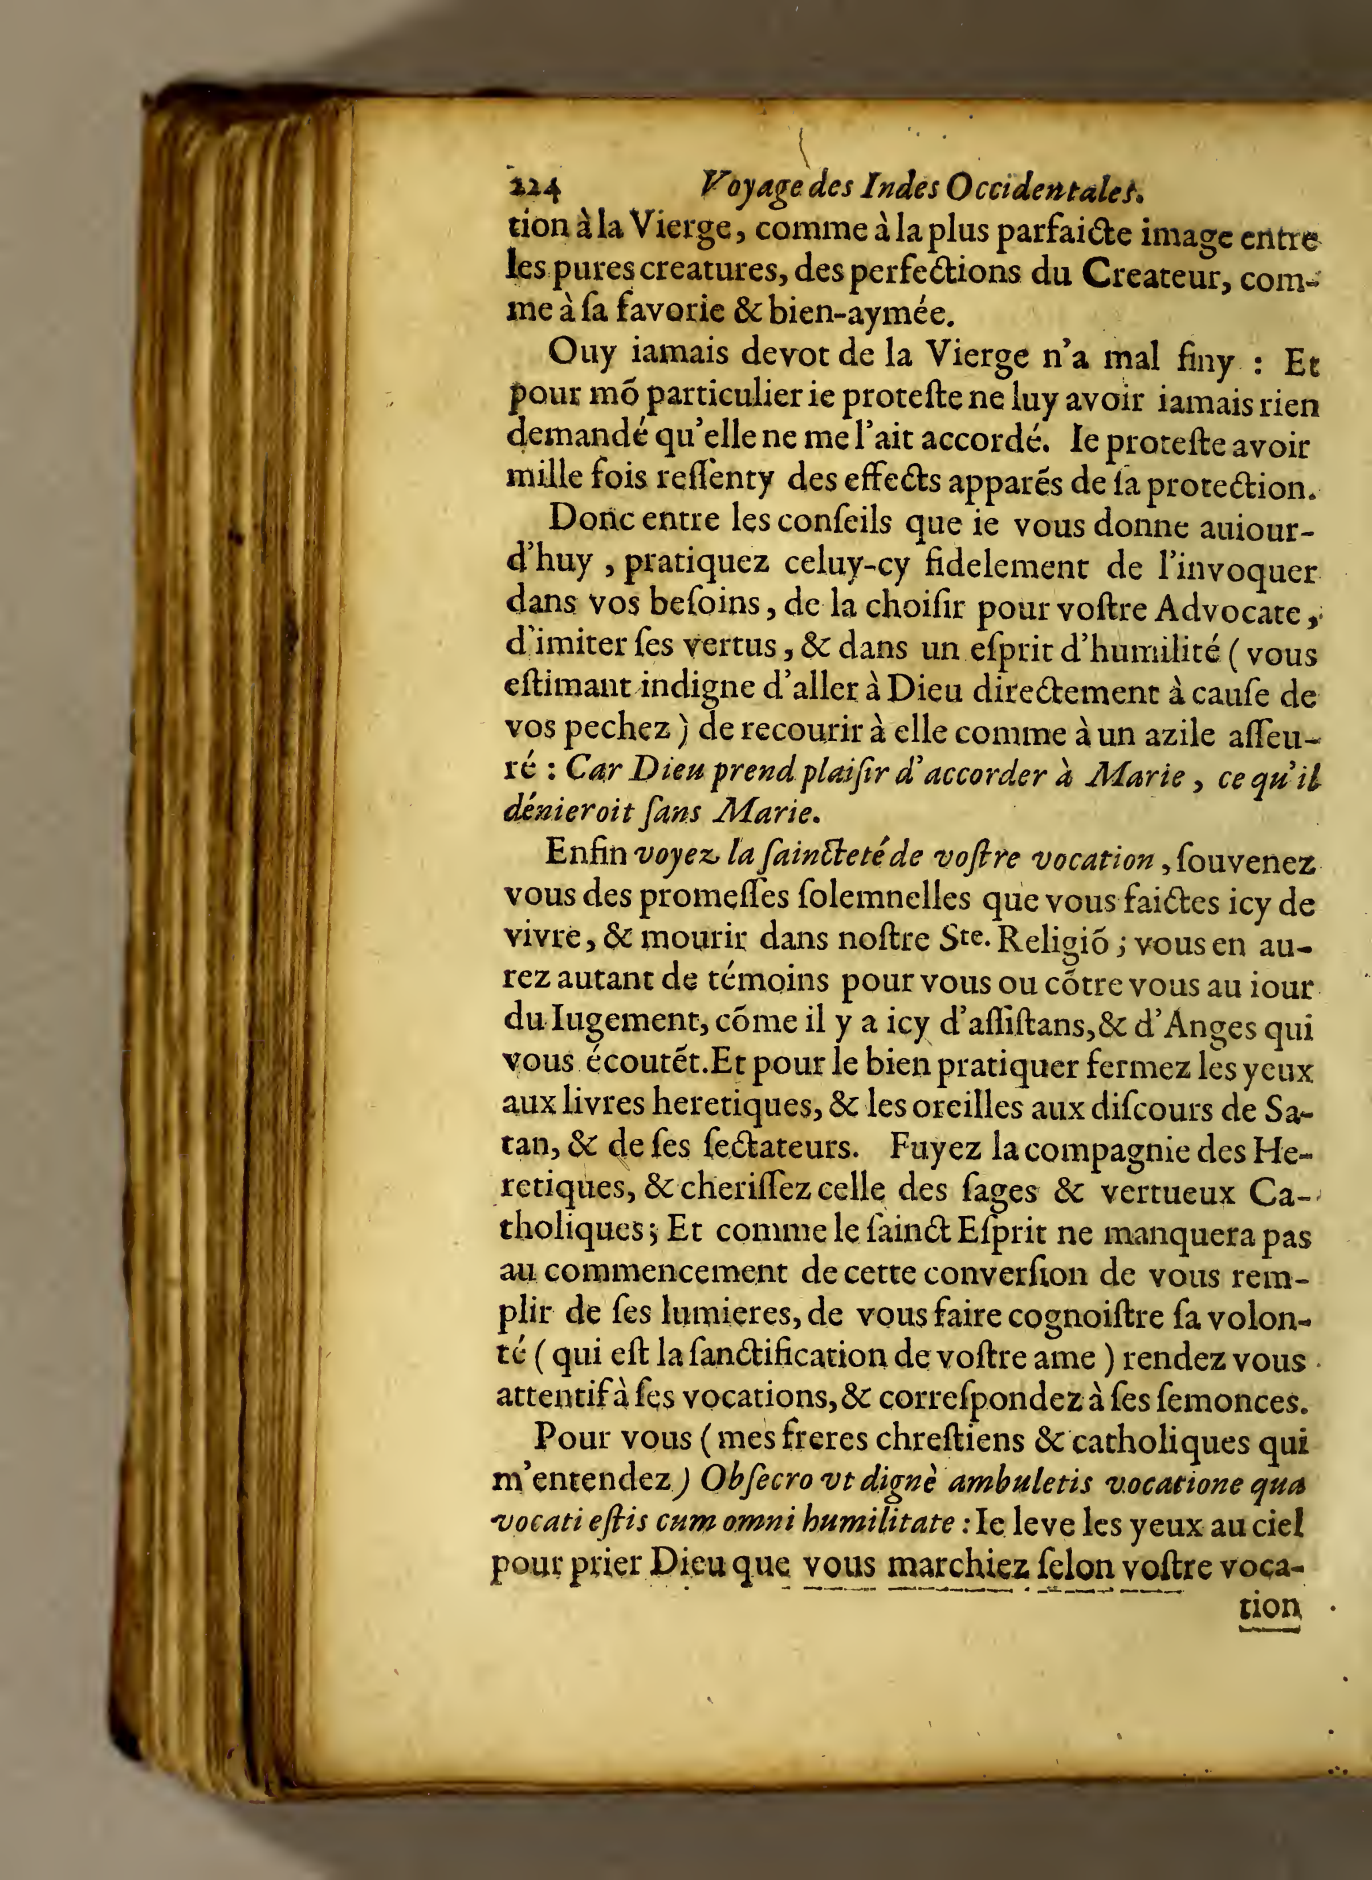 224 Voyage des Indes Occidentales.
tion à la Vierge, comme à la plus parfaicte image entre
les pures creatures, des perfections du Createur, com-
me à ſa favorie & bien-aymée.
Ouy iamais devot de la Vierge n'a mal finy : Et
pour mõ particulier ie proteſte ne luy avoir iamais rien
demandé qu'elle ne me l'ait accordé. Ie proteſte avoir
mille fois reſſenty des effects apparẽs de ſa protection.
Donc entre les conſeils que ie vous donne auiour-
d'huy , pratiquez celuy-cy fidelement de l'invoquer
dans vos beſoins, de la choiſir pour voſtre Advocate,
d'imiter ſes vertus, & dans un eſprit d'humilité ( vous
eſtimant indigne d'aller à Dieu directement à cauſe de
vos pechez ) de recourir à elle comme à un azile aſſeu-
ré : Car Dieu prend plaiſir d'accorder à Marie , ce qu'il
dénieroit ſans Marie.
Enfin voyez la ſaincteté de voſtre vocation, ſouvenez
vous des promeſſes ſolemnelles que vous faictes icy de
vivre, & mourir dans noſtre Ste. Religiõ; vous en au-
rez autant de témoins pour vous ou cõtre vous au iour
du Iugement, cõme il y a icy d'aſſiſtans, & d'Anges qui
vous écoutẽt. Et pour le bien pratiquer fermez les yeux
aux livres heretiques, & les oreilles aux diſcours de Sa-
tan, & de ſes ſectateurs. Fuyez la compagnie des He-
retiques, & cheriſſez celle des ſages & vertueux Ca-
tholiques; Et comme le ſainct Eſprit ne manquera pas
au commencement de cette converſion de vous rem-
plir de ſes lumieres, de vous faire cognoiſtre ſa volon-
té ( qui eſt la ſanctification de voſtre ame ) rendez vous
attentif à ſes vocations, & correſpondez à ſes ſemonces.
Pour vous ( mes freres chreſtiens & catholiques qui
m'entendez ) Obſecro vt dignè ambuletis vocatione qua
vocati eſtis cum omni humilitate : Ie leve les yeux au ciel
pour prier Dieu que vous marchiez ſelon voſtre voca-
tion